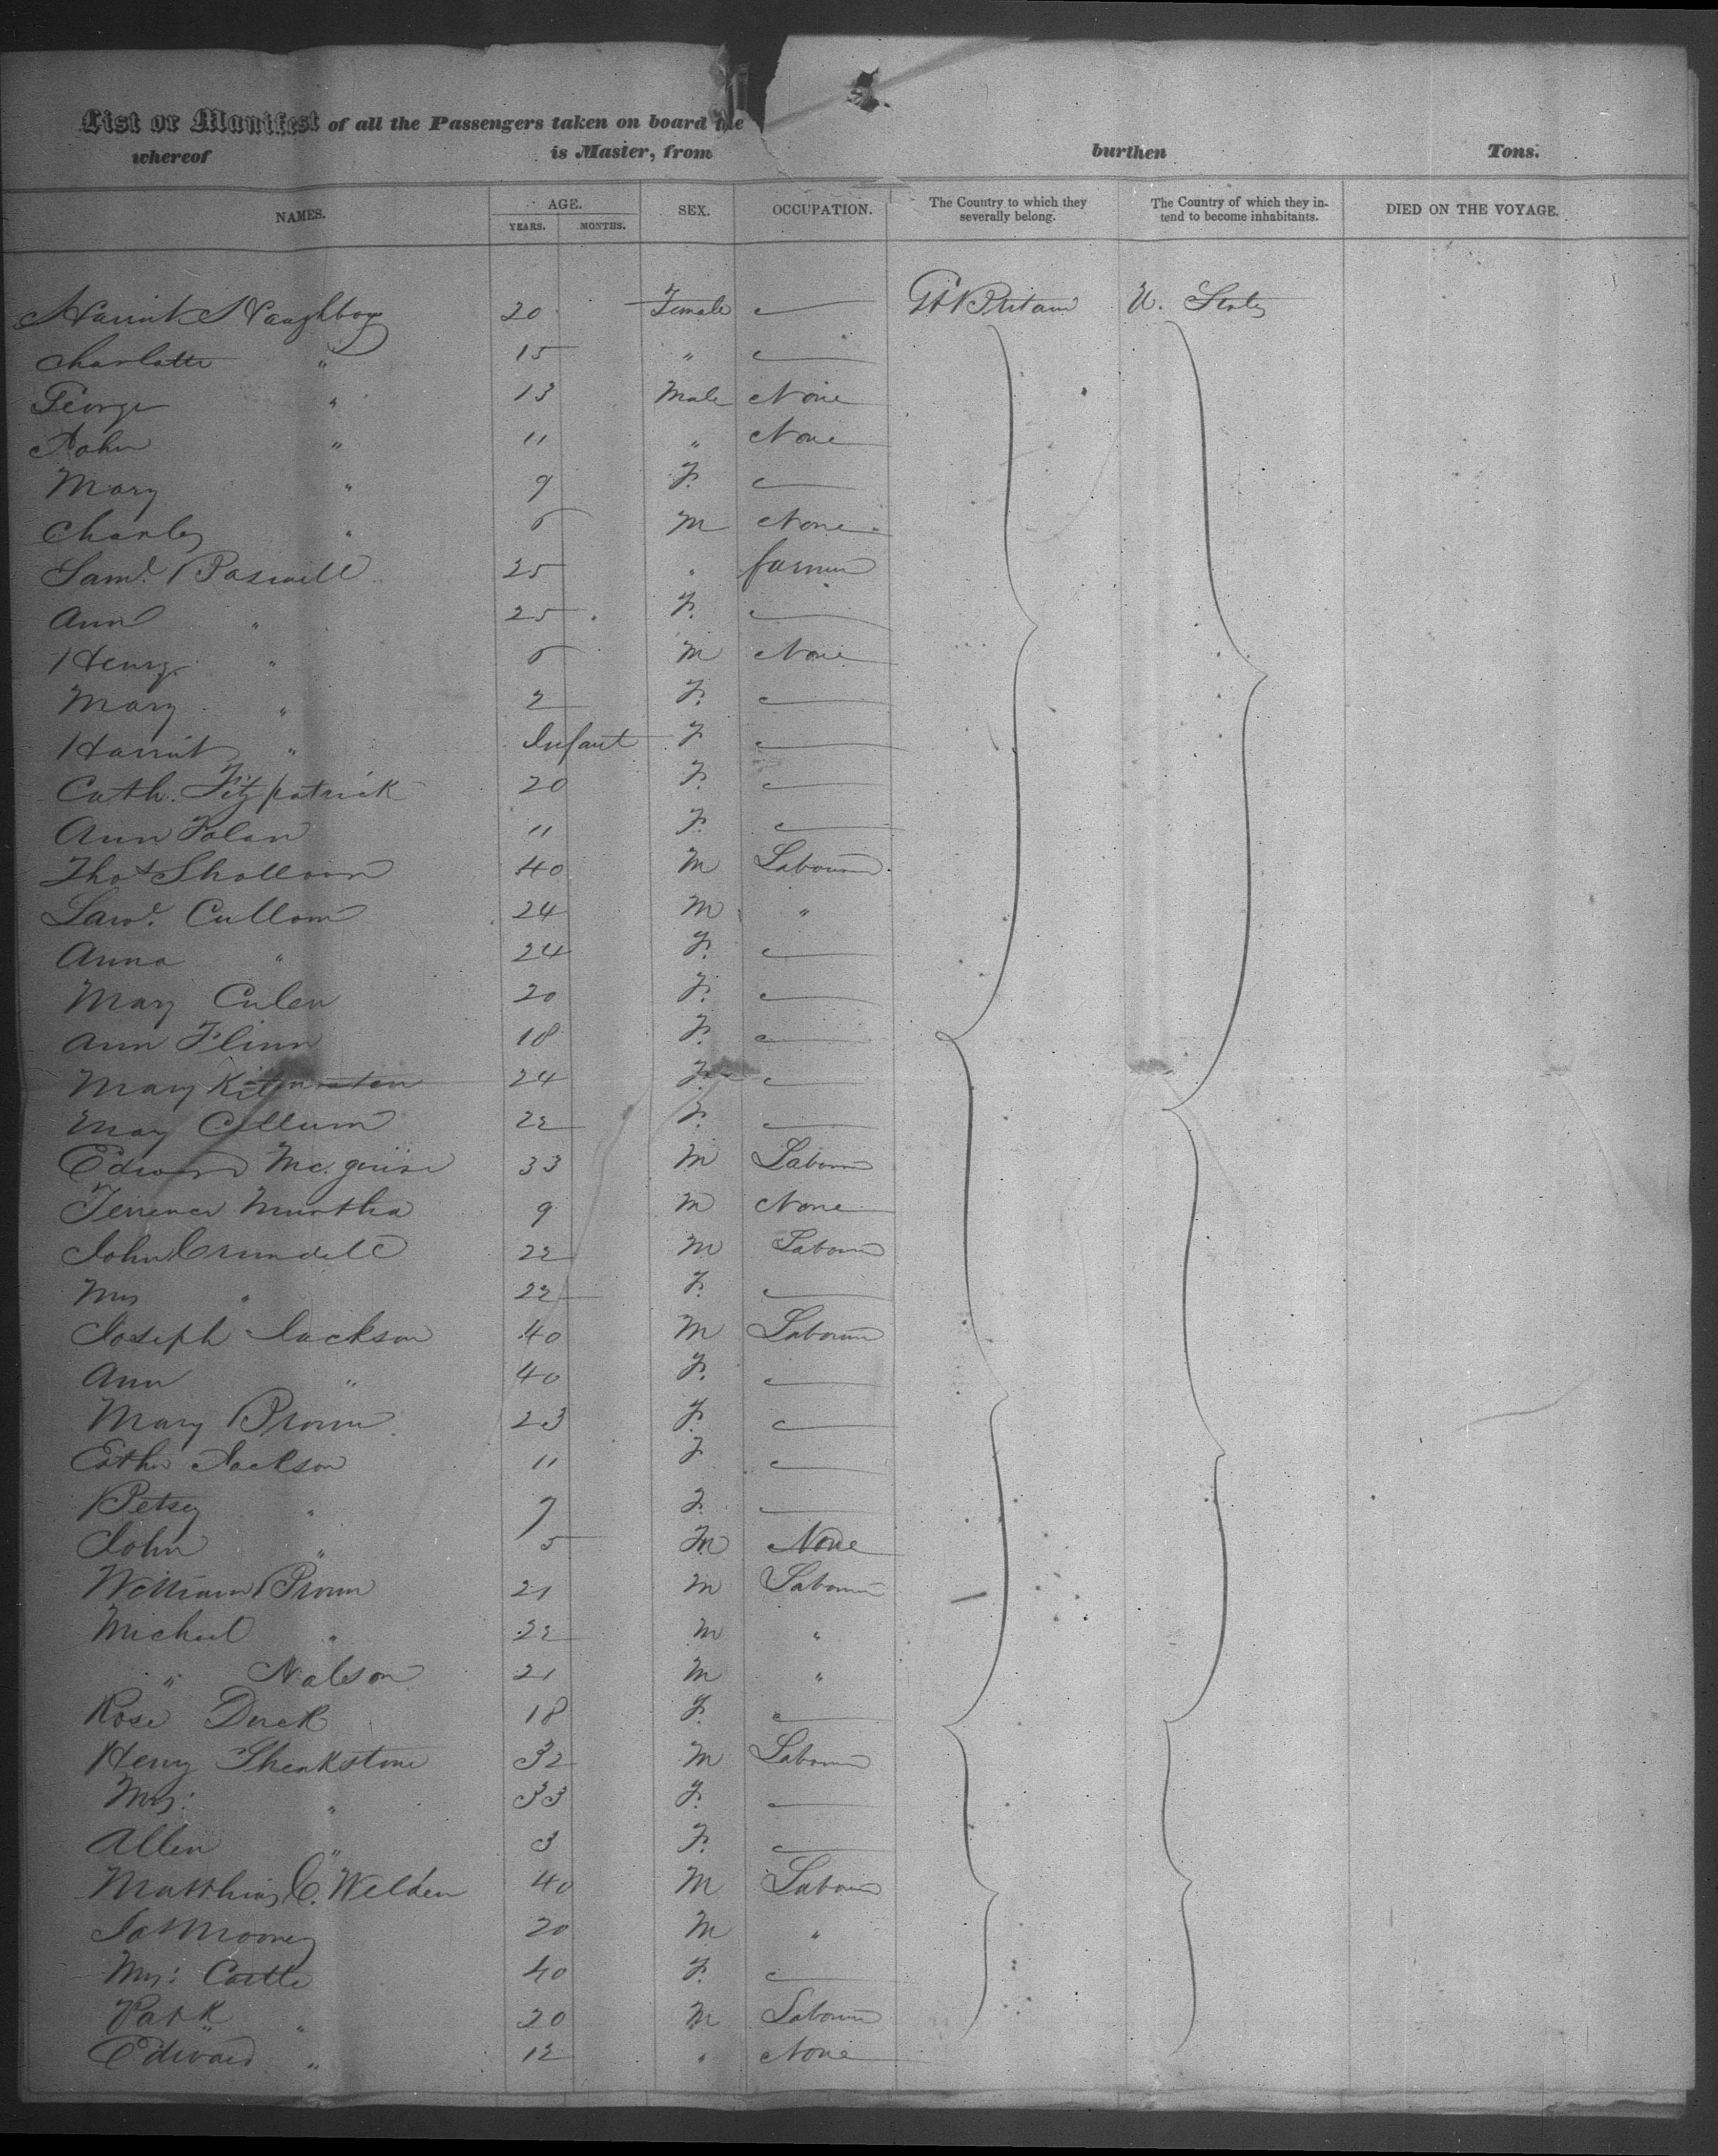 List or Manifest of all the Passengers taken on board the
whereof is Master, from burthen Tons.
NAMES. AGE. YEARS. MONTHS. SEX. OCCUPATION. The Country to which they severally belong. The Country of which they intend to become inhabitants. DIED ON THE VOYAGE.
Harriit 20 Female Gt Britain U. States
Charlotte " 15 "
George " 13 Male None
John " 11 " None
Mary " 9 F.
Charles " M None
Saml. 25 " farmer
Ann " 25 F.
Henry " M None
Mary " 2 F.
Harriit " Infant F
Cath. Fitzpatrick 20 F.
Ann Folan 11 F.
Thos 40 M Labourer
Lawe. Cullom 24 M "
Anna " 24 F.
Mary Culen 20 F.
Ann Flinn 18 F.
Mary 24 F.
Mary Cullum 22 F.
Edward Mc.guire 33 M Labourer
Terrence Murtha 9 M None
John Crundell 22 M Labourer
Mrs " 22 F.
Joseph Jackson 40 M Labourer
Ann " 40 F.
Mary Brown 23 F.
Esther Jackson 11 F
Betsey " 7 F.
John " 5 M None
William Brown 21 M Labourer
Micheal " 22 M "
" Nalson 21 M "
Rose Duck 18 F.
Henry Sheakstone 32 M Labourer
Mrs: " 33 F.
Allen " 3 F.
Matthias C. Welden 40 M Labourer
Jas Mooney 20 M "
Mrs: Castle 40 F.
Patk " 20 M Labourer
Edward " 12 " None